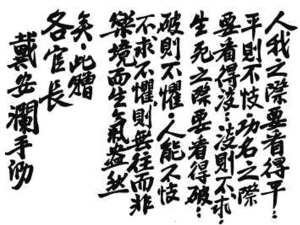 人我之際要看得平：
平則不忮，功名之際
要看得淡：淡則不求，
生死之際要看得破：
破則不懼，人能不忮
不求不懼則無往而非
樂境而生氣盎然
矣，此贈
各官長
戴安瀾手泐